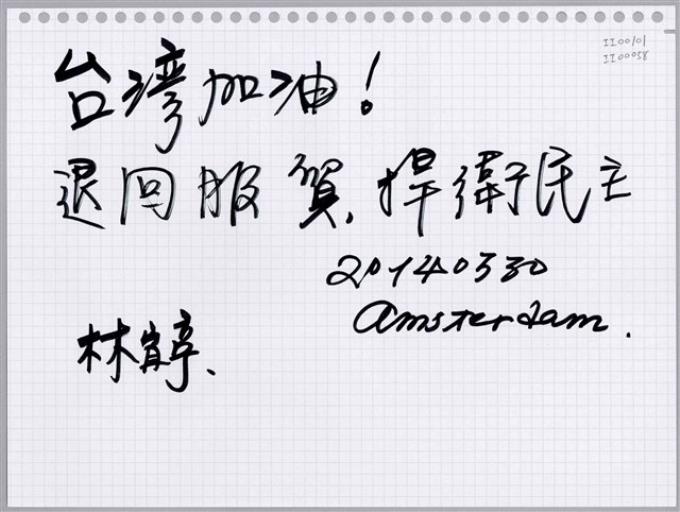 II00101
II00058
台湾加油!
退回服貿,捍衛民主
20140330
Amsterdam.
林